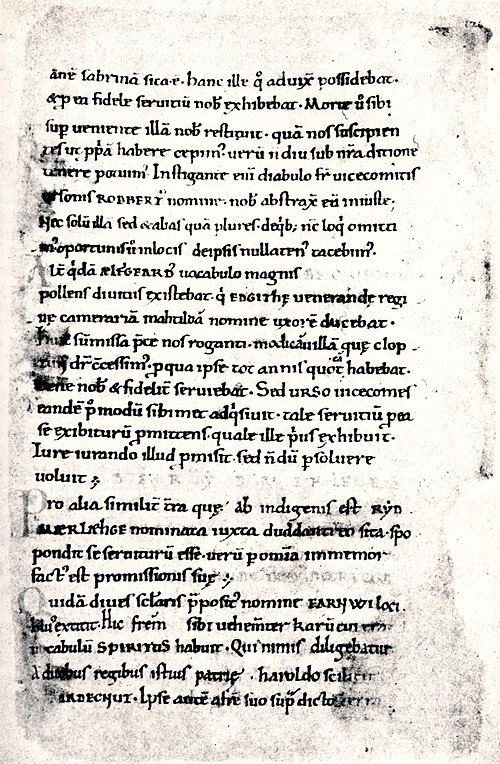 anē sabrinā sita·ē· hanc ille q̄ aduix̄ possidebat·
& p ea fidele seruitiū nob̄ exhibebat· Morte ū sibi
sup ueniente illā nob̄ restituit· quā nos suscipien
ut ppā habere cepim᷒· uerū n̄ diu sub nr̄a ditione
tenere potuim᷒ Instigante eni diabolo fr̄ uicecomitis
ursonis RODBERT᷒ nomine· nob̄ abstrax̄ eā iniuste·
Nec solū illā sed & alias quā plures· de q̄b; nc̄ loq̄ omitti
m᷒ oportunis ū in locis de ipsis nullaten᷒ tacebim᷒·
q̄dā ÆLFGEARD᷒ uocabulo magnis
pollens diuitiis existebat· q̄ EDGIÞE uenerande regi
ne camerariā mahtildā nomine uxorē ducebat·
sūmissa p̄ce nos roganti· modicā uillā quę clop
p qua ipse tot annis quot habebat·
bene nob̄ & fidelit̄ seruiebat· Sed URSO uicecomes
eandē p̄ modū sibimet adq̄siuit· tale seruitiū p ea
se exhibiturū pmittens· quale ille p̄us exhibuit·
Iure iurando illud pmisit· sed n̄ dū psoluere
uoluit ;
Pro alia similit̄ t̄ra quę ab indigenis est RYD
MÆRLÆHGE nominata iuxta duddantreo sita· spo
pondit se seruiturū esse· uerū p omīa immemor
fact᷒ est promissionis suę ;
Quidā diues scl̄aris p̄posit᷒ nomine EARNWI loci
extitit· Hic frēm sibi uehemēter karū cui
uocabulū SPIRITUS habuit· Qui nimis diligebatur
a duobus regibus istius patrię· haroldo scilicet
HARDECNUT· Ipse autē afr̄e suo sup̄ dicto